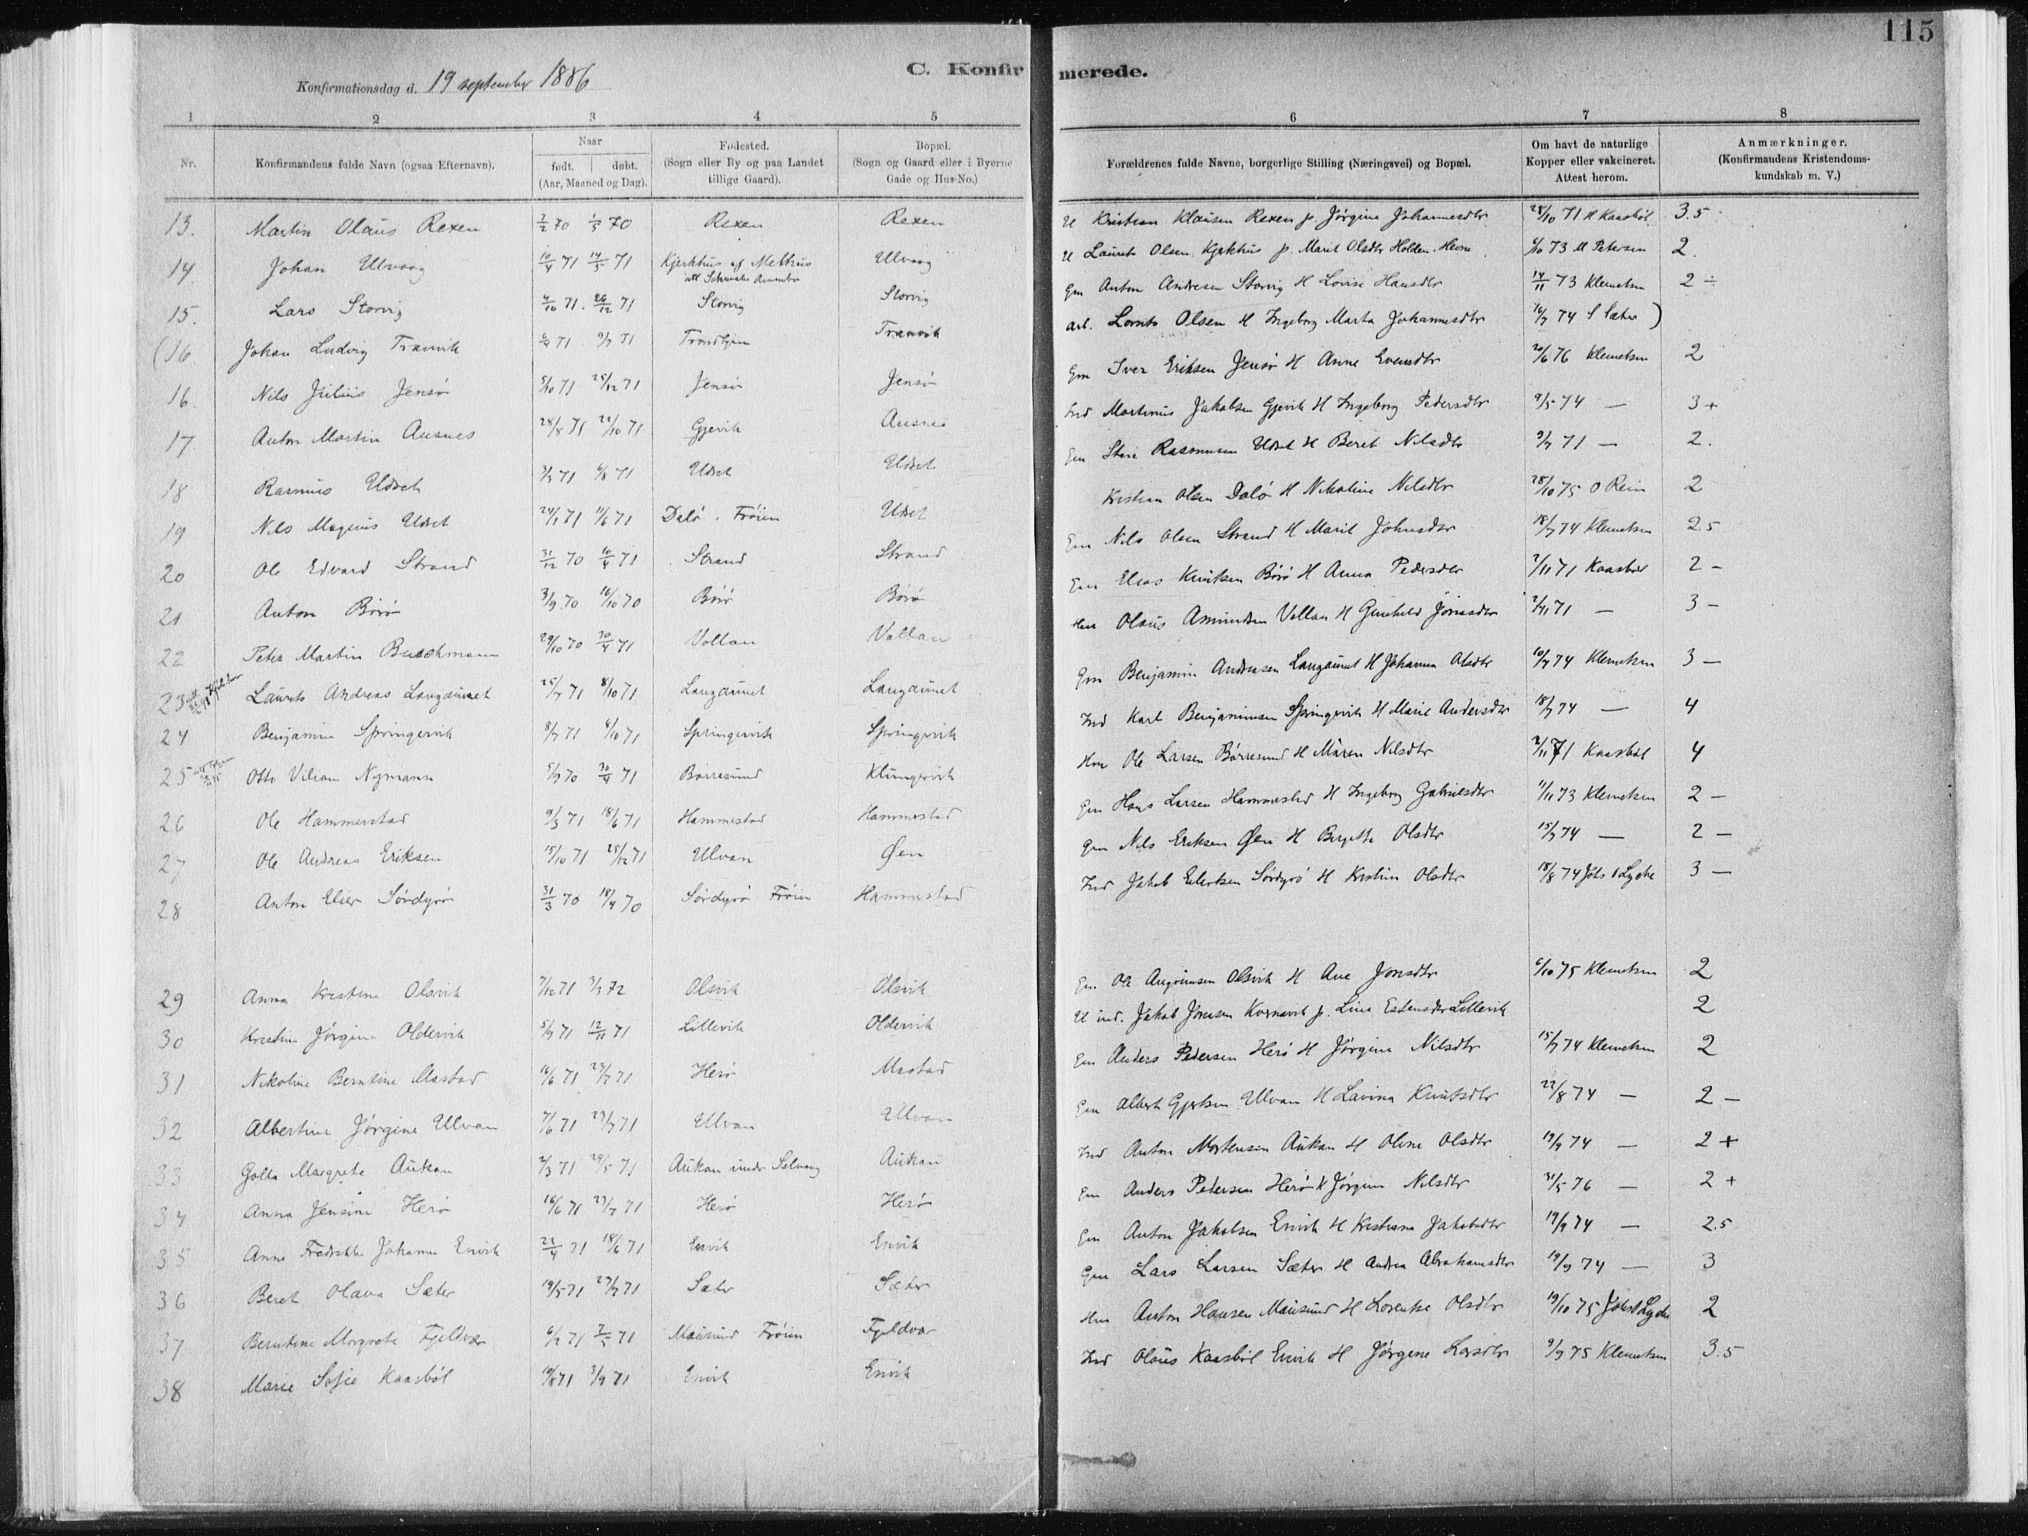 115
C. Konfirmerede.
Konfirmationsdag d. 19 september 1886
1 2 3 4 5 6 7 8
Nr. Konfirmandens fulde Navn (ogsaa Efternavn). Naar født. døbt. (Aar, Maaned og Dag). Fødested. (Sogn eller By og paa Landet tillige Gaard). Bopæl. (Sogn og Gaard eller i Byerne Gade og Hus-No.) Forældrenes fulde Navne, borgerlige Stilling (Næringsvei) og Bopæl. Om havt de naturlige Kopper eller vakcineret. Attest herom. Anmærkninger. (Konfirmandens Kristendomskundskab m. V.)
13. Martin Olaus Rexen 2/2 70 1/5 70 Rexen Rexen U Kristian Klausen Rexen p. Jørgine Johannesdtr 28/10 71 H Kaasbøl 3.5
14. Johan Ulvaag 10/4 71 14/5 71 Kjerkhus af Melhus Ulvaag U Laurits Olsen p. Marit Olsdtr Holden. Hevne 73 M Petersen 2.
15. Lars Storvig 6/10 71. 26/12 71 Storvig Storvig Gm Anton Andresen Storvig H Lovise Hansdtr 14/11 73 Klemetsen 2 ÷
(16. Johan Ludvig Tranvik 71 9/7 71 Trondhjem Tranvik arb. Lornts Olsen H Ingeborg Marta Johannesdtr 16/7 74 S Sæter )
16. Nils Julius Jensø 5/10 71 25/12 71 Jensø Jensø Gm Iver Eriksen Jensø H Anne Evensdtr 20/6 76 Klemetsen 2
17. Anton Martin Ausnes 28/8 71 22/10 71 Gjevik Ausnes Ind Martinus Jakobsen Gjevik H Ingeborg Pedersdtr 9/5 74 — 3 +
18 Rasmus Udset 3/3 71 6/8 71 Udset Udset Gm Rasmusen Udset H Beret Nilsdtr 9/7 71 — 2.
19 Nils Magnus Udset 24/1 71 11/6 71 Dalø. Frøien Udset Kristian Olsen Dalø H Nikoline Nilsdtr 28/10 75 O Rein 2
20 Ole Edvard Strand 31/12 70 10/4 71 Strand Strand Gm Nils Olsen Strand H Marit Johnsdtr 18/7 74 Klemetsen 2.5
21 Anton Børø 3/9 70 16/10 70 Børø Børø Gm Elias Knutsen Børø H Anna Pedersdtr 2/11 71 Kaasbøl 2 -
22 Peter Martin Buschmann 29/10 70 30/4 71 Vollan Vollan Hm Olaus Amundsen Vollan H Gunhild Jonasdtr 2/11 71 — 3 -
23 Laurits Andreas Langaunet 25/7 71 8/10 71 Langaunet Langaunet Gm Benjamin Andreasen Langaunet H Johanna Olsdtr 10/7 74 Klemetsen 3 —
24 Benjamin Springervik 8/7 71 8/10 71 Springervik Springervik Ind Karl Benjaminsen Springervik H Marit Andersdtr 18/7 74 — 4
25 Otto Viliam Nymann 5/9 70 30/4 71 Børresund Klungervik Hm Ole Larsen Børresund H Maren Nilsdtr 2/11 71 Kaasbøl 4
26 Ole Hammerstad 9/3 71 18/6 71 Hammerstad Hammerstad Gm Hans Larsen Hammerstad H Ingeborg Gabrielsdtr 11/11 73 Klemetsen 2 —
27 Ole Andreas Eriksen 15/10 71 25/12 71 Ulvan Øen Gm Nils Eriksen Øen H Bergitte Olsdtr 15/7 74 — 2 —
28 Anton Elier Sørdyrø 31/3 70 18/4 70 Sørdyrø Frøien Hammerstad Ind Jakob Eilertsen Sørdyrø H Kristine Olsdtr 18/8 74 Johs Lycke 3 —
29 Anna Kristine Olsvik 7/12 71 3/3 72 Olsvik Olsvik Gm Ole Olsvik H Ane Jonsdtr 6/10 75 Klemetsen 2
30 Kristine Jørgine Oldervik 5/9 71 12/11 71 Lillevik Oldervik U ind. Jakob Jonsen Kvernavik p. Lina Estensdtr Lillevik 2
31 Nikoline Berntine Mastad 16/6 71 23/7 71 Herø Mastad Gm Anders Pedersen Herø H Jørgine Nilsdtr 15/7 74 Klemetsen 2
32 Albertine Jørgine Ulvan 7/6 71 23/7 71 Ulvan Ulvan Gm Albert Gjertsen Ulvan H Lavina Knutsdtr 22/8 74 — 2 —
33 Golla Margrete Aukan 2/3 71 29/5 71 Aukan under Selvaag Aukan Ind Anton Mortensen Aukan H Oline Olsdtr 19/9 74 — 2 +
34 Anna Jensine Herø 16/6 71 23/7 71 Herø Herø Gm Anders Pedersen Herø H Jørgine Nilsdtr 31/5 76 — 2 +
35 Anne Fredrikke Johanna Envik 22/4 71 18/6 71 Envik Envik Gm Anton Jakobsen Envik H Kristiane Jakobsdtr 19/9 74 — 2.5
36 Beret Olava Sæter 19/5 71 23/7 71 Sæter Sæter Gm Lars Larsen Sæter H Andrea Abrahamsdtr 19/9 74 — 3
37 Berntine Margrete Fjeldvær 6/2 71 7/5 71 Mausund Frøien Fjeldvær Hm Anton Hansen Mausund H Lorentse Olsdtr 19/10 75 Johs Lycke 2
38 Marie Sofie Kaasbøl 19/8 71 3/9 71 Envik Envik Ind Olaus Kaasbøl Envik H Jørgine Larsdtr 9/9 75 Klemetsen 3.5